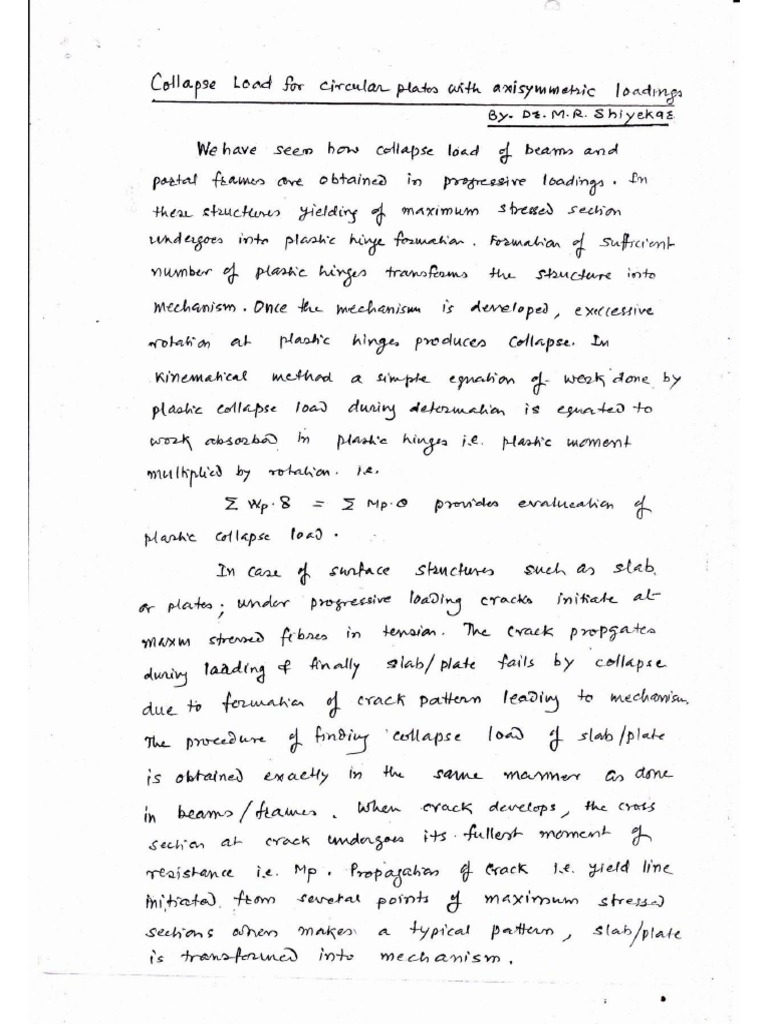 Collapse Load for circular plates with axisymmetric loadings
By. Dr. M.R. Shiyekar
We have seen how collapse load of beams and
portal frames are obtained in progressive loadings. In
these structures yielding of maximum stressed section
undergoes into plastic hinge formation. Formation of sufficient
number of plastic hinges transforms the structure into
mechanism. Once the mechanism is developed, exccessive
rotation at plastic hinges produces collapse. In
kinematical method a simple equation of work done by
plastic collapse load during deformation is equated to
work absorbed in plastic hinges i.e. plastic moment
multiplied by rotation. i.e.
Σ Wp·δ = Σ Mp·θ provides evalueation of
plastic collapse load.
In case of surface structures such as slab
or plates; under progressive loading cracks initiate at
maxm stressed fibres in tension. The crack propgates
during loading & finally slab/plate fails by collapse
due to formation of crack pattern leading to mechanism.
The procedure of finding collapse load of slab/plate
is obtained exactly in the same manner as done
in beams/frames. When crack develops, the cross
section at crack undergoes its fullest moment of
resistance i.e. Mp. Propagation of crack i.e. yield line
initiated from several points of maximum stressed
sections when makes a typical pattern, slab/plate
is transformed into mechanism.